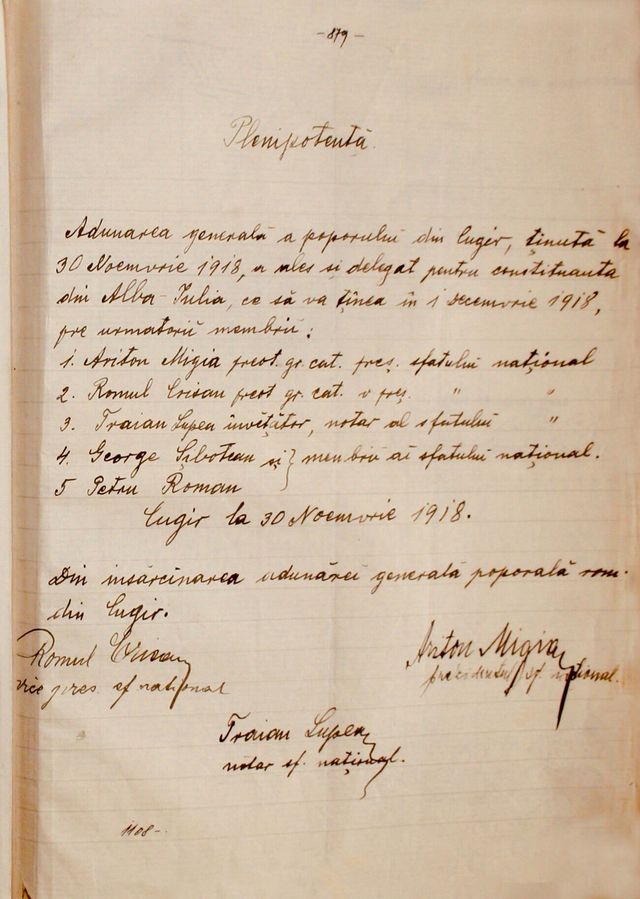 - 879 -
Plenipotență.
Adunarea generală a poporului din Cugir, ținută la
30 Noemvrie 1918, a ales și delegat pentru constituanta
din Alba-Iulia, ce să va ținea în 1 Decemvrie 1918,
pre urmatorii membrii:
1. Ariton Migia preot. gr. cat. preș. sfatului național
2. Romul Crisan preot gr. cat. v preș. " "
3. Traian Lupea învețător, notar al sfatului "
4. George Șibotean și } membrii ai sfatului național.
5 Petru Roman
Cugir la 30 Noemvrie 1918.
Din insărcinarea adunărei generală poporală rom.
din Cugir.
Romul Crisan
vice pres. sf național
Ariton Migia
presidentul sf. național.
Traian Lupea
notar sf. național.
1108-